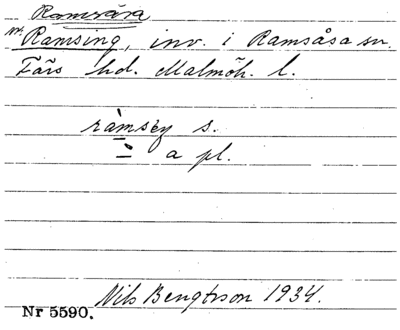 Ramsåsa
nr. Ramsing, inv. i Ramsåsa sn.
Färs hd. Malmöh. l.
ràmsèŋ s.
– a pl.
Nils Bengtsson 1934.
Nr 5590.